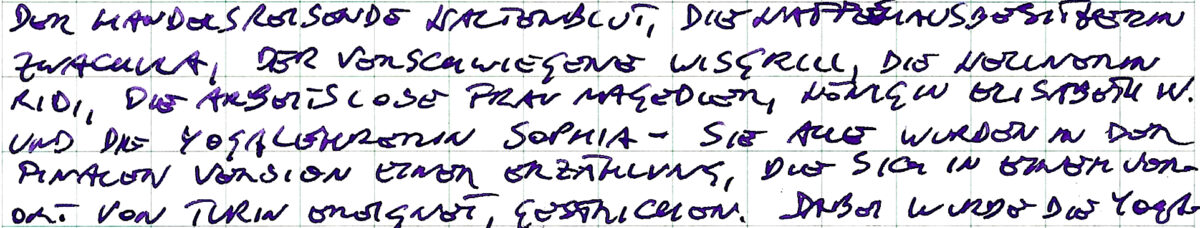 DER HANDELSREISENDE KALTENBLUT, DIE KAFFEEHAUSBESITZERIN
ZWACHULA, DER VERSCHWIEGENE WISGRILL, DIE KELLNERIN
RIDI, DIE ARBEITSLOSE FRAU MAGEDLER, KÖNIGIN ELISABETH IV.
UND DIE YOGALEHRERIN SOPHIA – SIE ALLE WURDEN IN DER
FINALEN VERSION EINER ERZÄHLUNG, DIE SICH IN EINEM VOR-
ORT VON TURIN EREIGNET, GESTRICHEN. DABEI WURDE DIE YOGA-